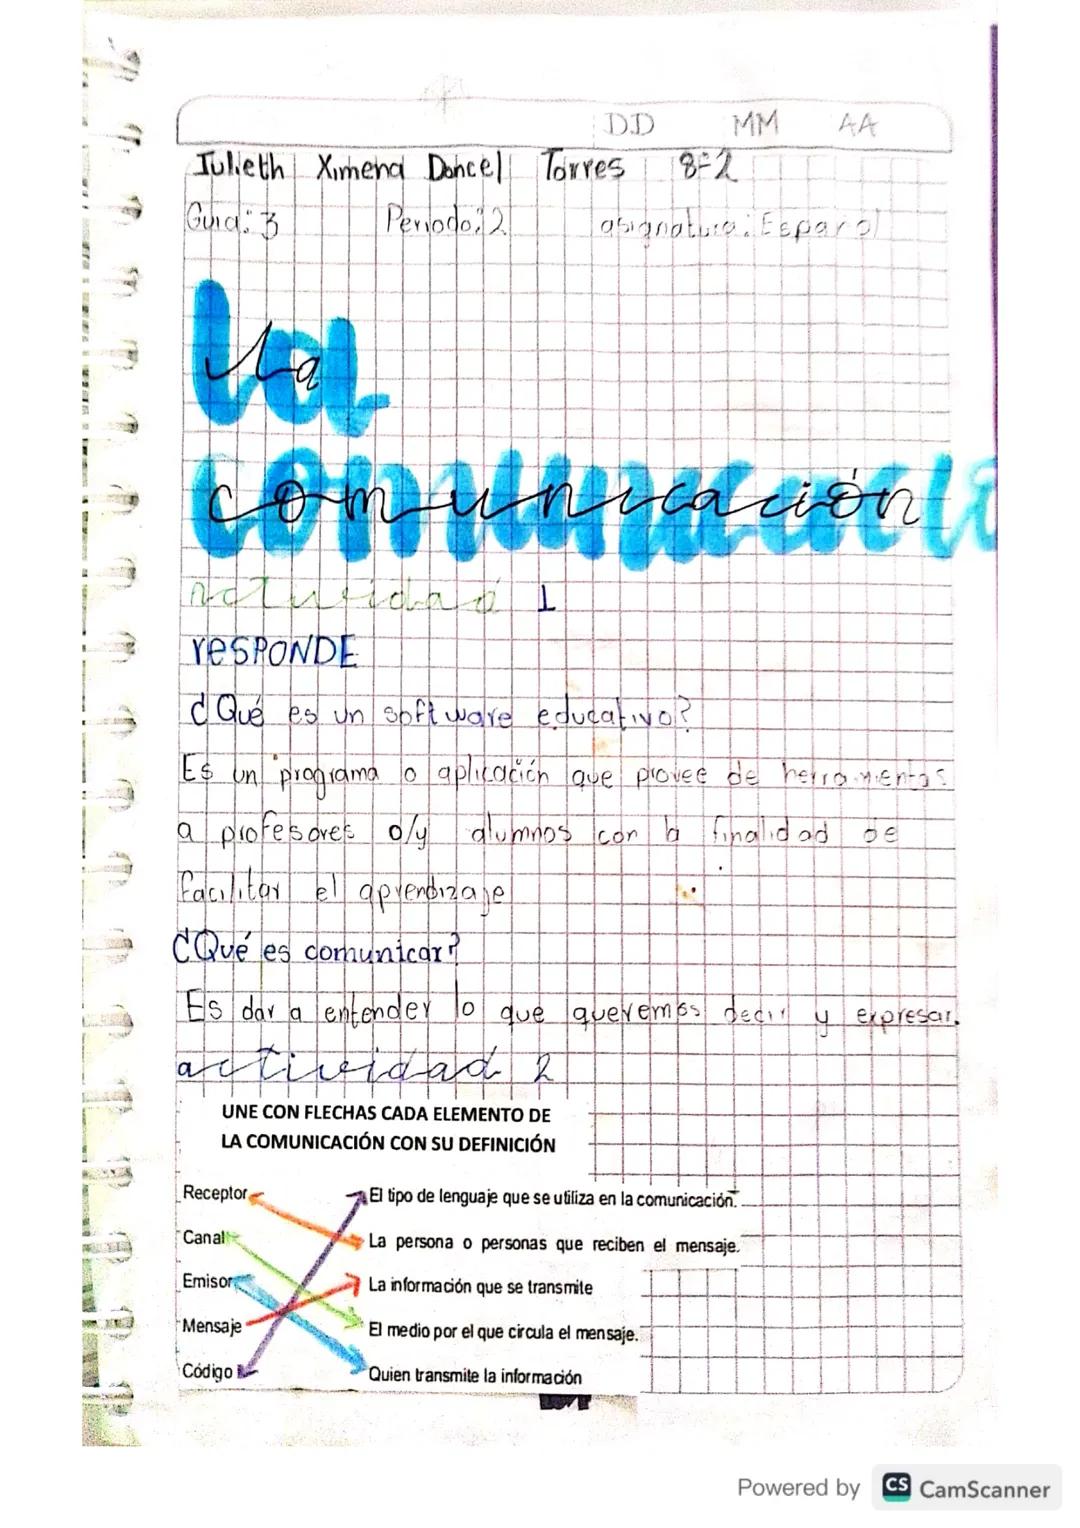 DD MM AA
Julieth Ximena Doncel Torres 8-2
Guia: 3 Periodo: 2 asignatura: Español
La
comunicación
actividad 1
resPONDE
¿Qué es un software educativo?
Es un programa o aplicación que provee de herramientas
a profesores o/y alumnos con la finalidad de
facilitar el aprendizaje
¿Qué es comunicar?
Es dar a entender lo que queremos decir y expresar.
actividad 2
UNE CON FLECHAS CADA ELEMENTO DE
LA COMUNICACIÓN CON SU DEFINICIÓN
Receptor El tipo de lenguaje que se utiliza en la comunicación.
Canal La persona o personas que reciben el mensaje.
Emisor La información que se transmite
Mensaje El medio por el que circula el mensaje.
Código Quien transmite la información
Powered by CS CamScanner